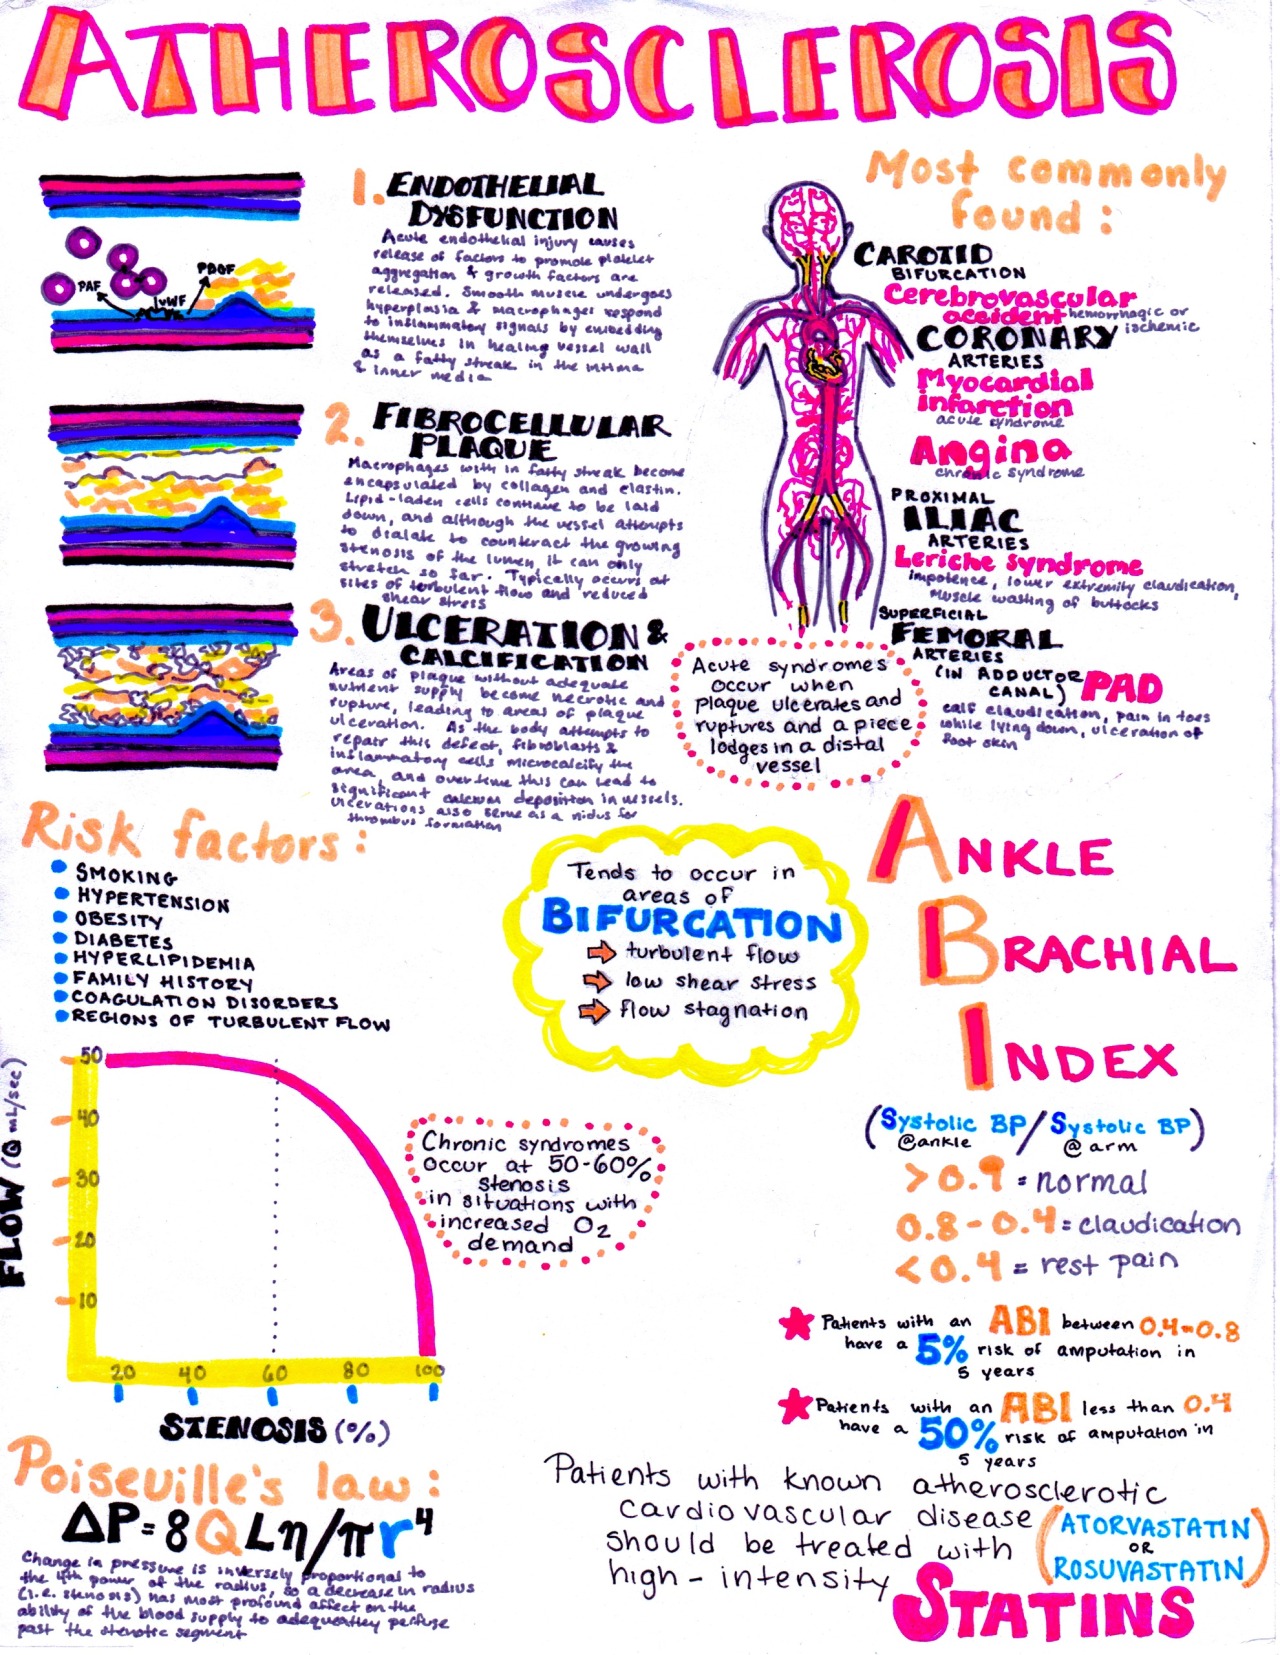 ATHEROSCLEROSIS
1. ENDOTHELIAL
DYSFUNCTION
Acute endothelial injury causes
release of factors to promote platelet
aggregation & growth factors are
released. Smooth muscle undergoes
hyperplasia & macrophages respond
to inflammatory signals by embedding
themselves in healing vessel wall
as a fatty streak in the intima
& inner media
PAF
vWF
PDGF
2. FIBROCELLULAR
PLAQUE
Macrophages with in fatty streak become
encapsulated by collagen and elastin.
Lipid-laden cells continue to be laid
down, and although the vessel attempts
to dialate to counteract the growing
stenosis of the lumen, it can only
stretch so far. Typically occurs at
sites of turbulent flow and reduced
shear stress
3. ULCERATION &
CALCIFICATION
Areas of plaque without adequate
nutrient supply become necrotic and
rupture, leading to areas of plaque
ulceration. As the body attempts to
repair this defect, fibroblasts &
inflammatory cells microcalcify the
area, and overtime this can lead to
significant calcium deposition in vessels.
Ulcerations also serve as a nidus for
thrombus formation
Most commonly
found:
CAROTID
BIFURCATION
Cerebrovascular
accident hemorrhagic or
ischemic
CORONARY
ARTERIES
Myocardial
infarction
acute syndrome
Angina
chronic syndrome
PROXIMAL
ILIAC
ARTERIES
Leriche syndrome
impotence, lower extremity claudication,
muscle wasting of buttocks
SUPERFICIAL
FEMORAL
ARTERIES
(IN ADDUCTOR
CANAL) PAD
calf claudication, pain in toes
while lying down, ulceration of
foot skin
Acute syndromes
occur when
plaque ulcerates and
ruptures and a piece
lodges in a distal
vessel
Risk factors:
SMOKING
HYPERTENSION
OBESITY
DIABETES
HYPERLIPIDEMIA
FAMILY HISTORY
COAGULATION DISORDERS
REGIONS OF TURBULENT FLOW
Tends to occur in
areas of
BIFURCATION
turbulent flow
low shear stress
flow stagnation
ANKLE
BRACHIAL
INDEX
(Systolic BP / Systolic BP)
@ankle @ arm
>0.9 = normal
0.8-0.4 = claudication
<0.4 = rest pain
Patients with an ABI between 0.4-0.8
have a 5% risk of amputation in
5 years
Patients with an ABI less than 0.4
have a 50% risk of amputation in
5 years
FLOW (Q mL/sec)
50
40
30
20
10
20 40 60 80 100
STENOSIS (%)
Chronic syndromes
occur at 50-60%
stenosis
in situations with
increased O2
demand
Poiseuille's law:
ΔP=8QLη/πr⁴
Change in pressure is inversely proportional to
the 4th power of the radius, so a decrease in radius
(i.e. stenosis) has most profound affect on the
ability of the blood supply to adequatley perfuse
past the stenotic segment
Patients with known atherosclerotic
cardiovascular disease
should be treated with
high-intensity
(ATORVASTATIN
OR
ROSUVASTATIN)
STATINS